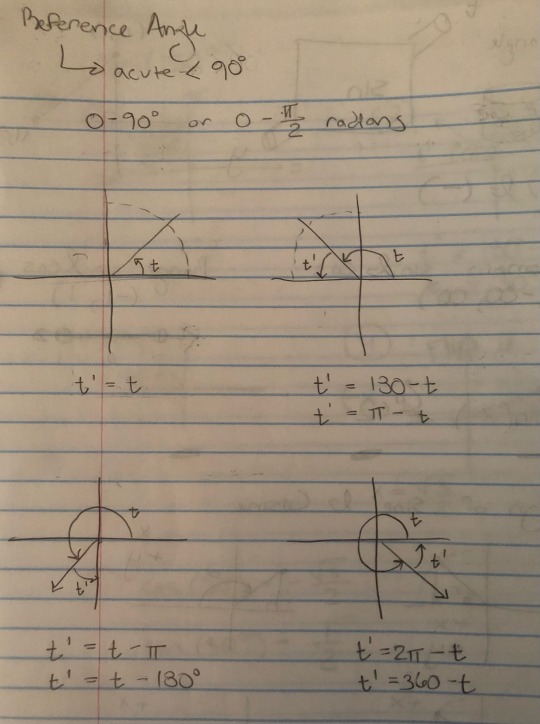 Reference Angle
↳ acute < 90°
0-90° or 0 - π/2 radians
t
t' t
t' = t
t' = 180-t
t' = π - t
t
t'
t
t'
t' = t - π
t' = 2π - t
t' = t - 180°
t' = 360-t